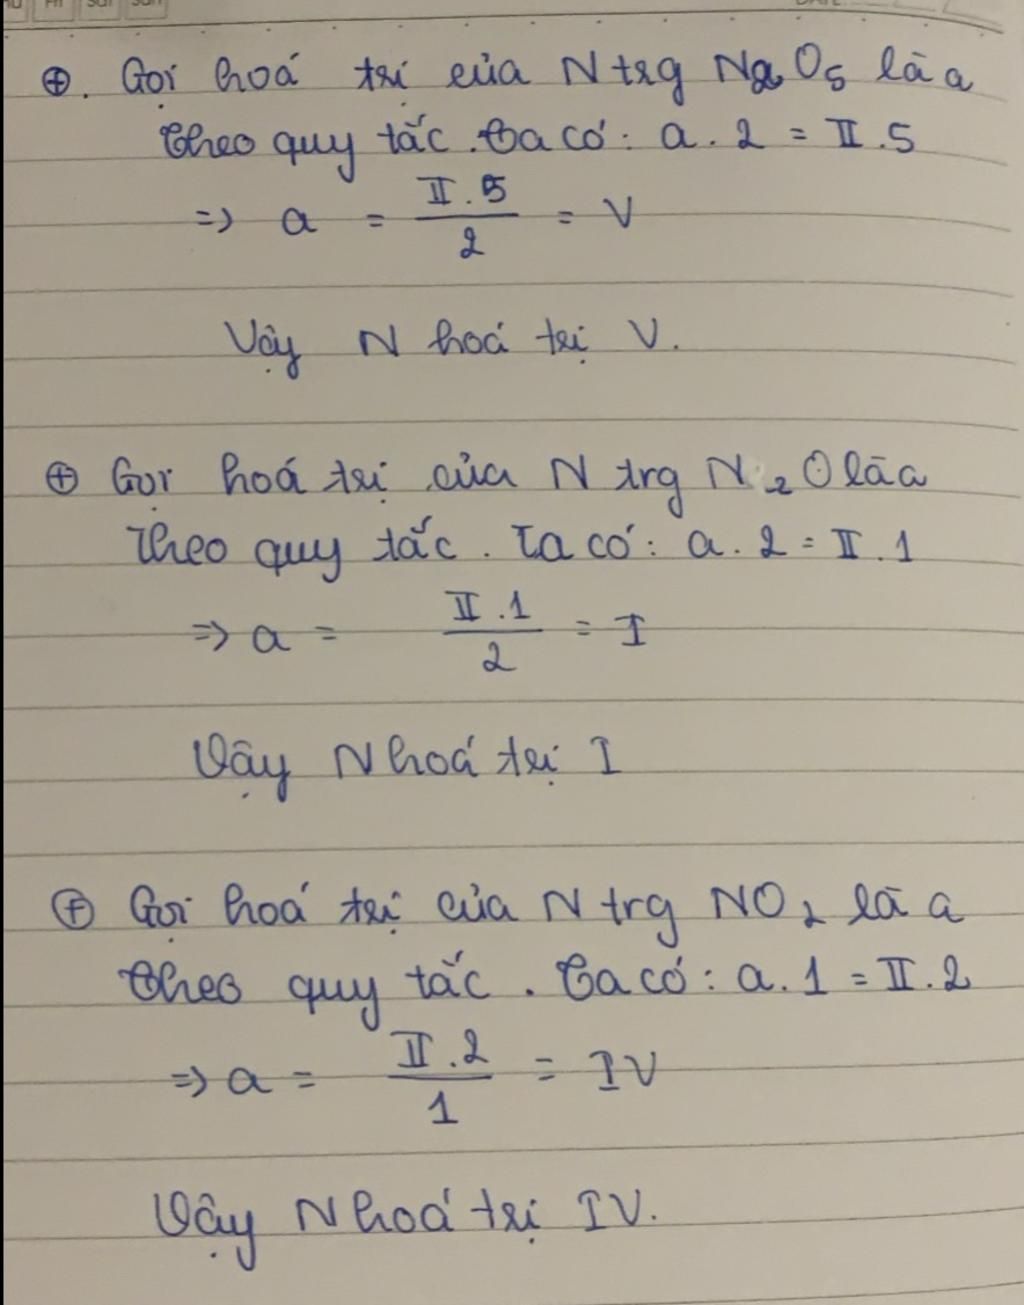 ⊕. Gọi hoá trị của N trg N2O5 là a
Theo quy tắc. Ta có: a. 2 = II.5
=> a = II.5/2 = V
Vậy N hoá trị V.
⊕ Gọi hoá trị của N trg N2O là a
Theo quy tắc. Ta có: a. 2 = II.1
=> a = II.1/2 = I
Vậy N hoá trị I
⊕ Gọi hoá trị của N trg NO2 là a
Theo quy tắc. Ta có: a. 1 = II.2
=> a = II.2/1 = IV
Vậy N hoá trị IV.